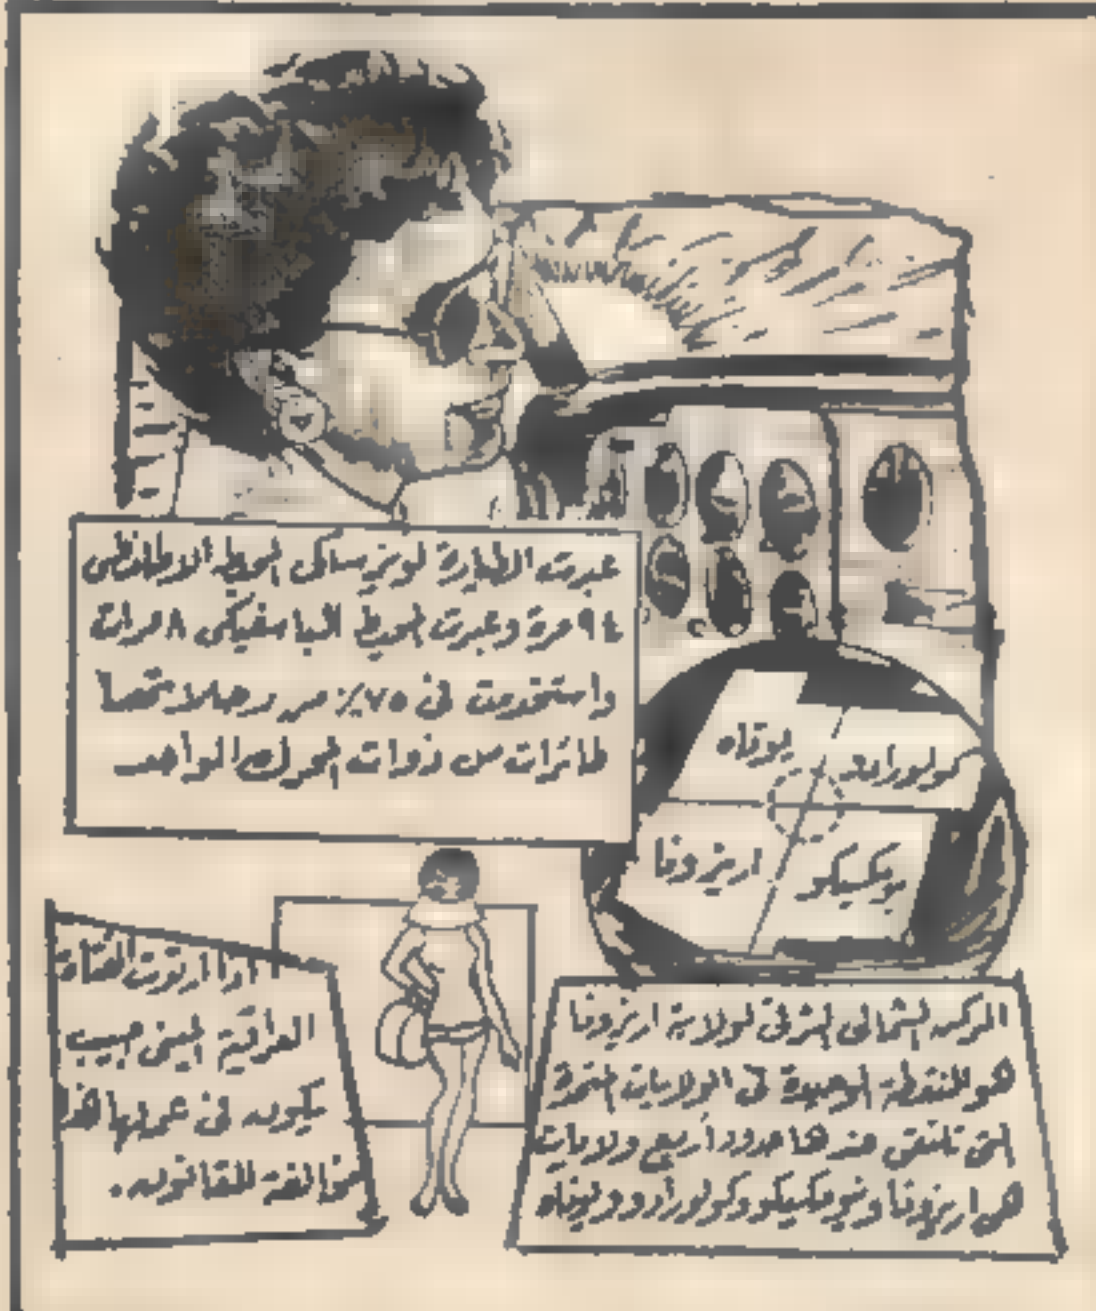 عبرت الطيارة لويز ساكي المحيط الاطلنطي
٩٤ مرة وعبرت المحيط الباسفيكي ٨ مرات
واستخدمت في ٧٥٪ من رحلاتها
طائرات من ذوات المحرك الواحد
يوتاه
كولورادو
اريزونا
يومكسيكو
الركن الشمالي الشرقي لولاية اريزونا
هو المنطقة الوحيدة في الولايات المتحدة
التي تلتقي عندها حدود أربع ولايات
هي اريزونا ونيومكسيكو وكولورادو ويوتاه
اذا ارتدت الفتاة
العراقية الميني جيب
يكون في عملها هذا
مخالفة للقانون.